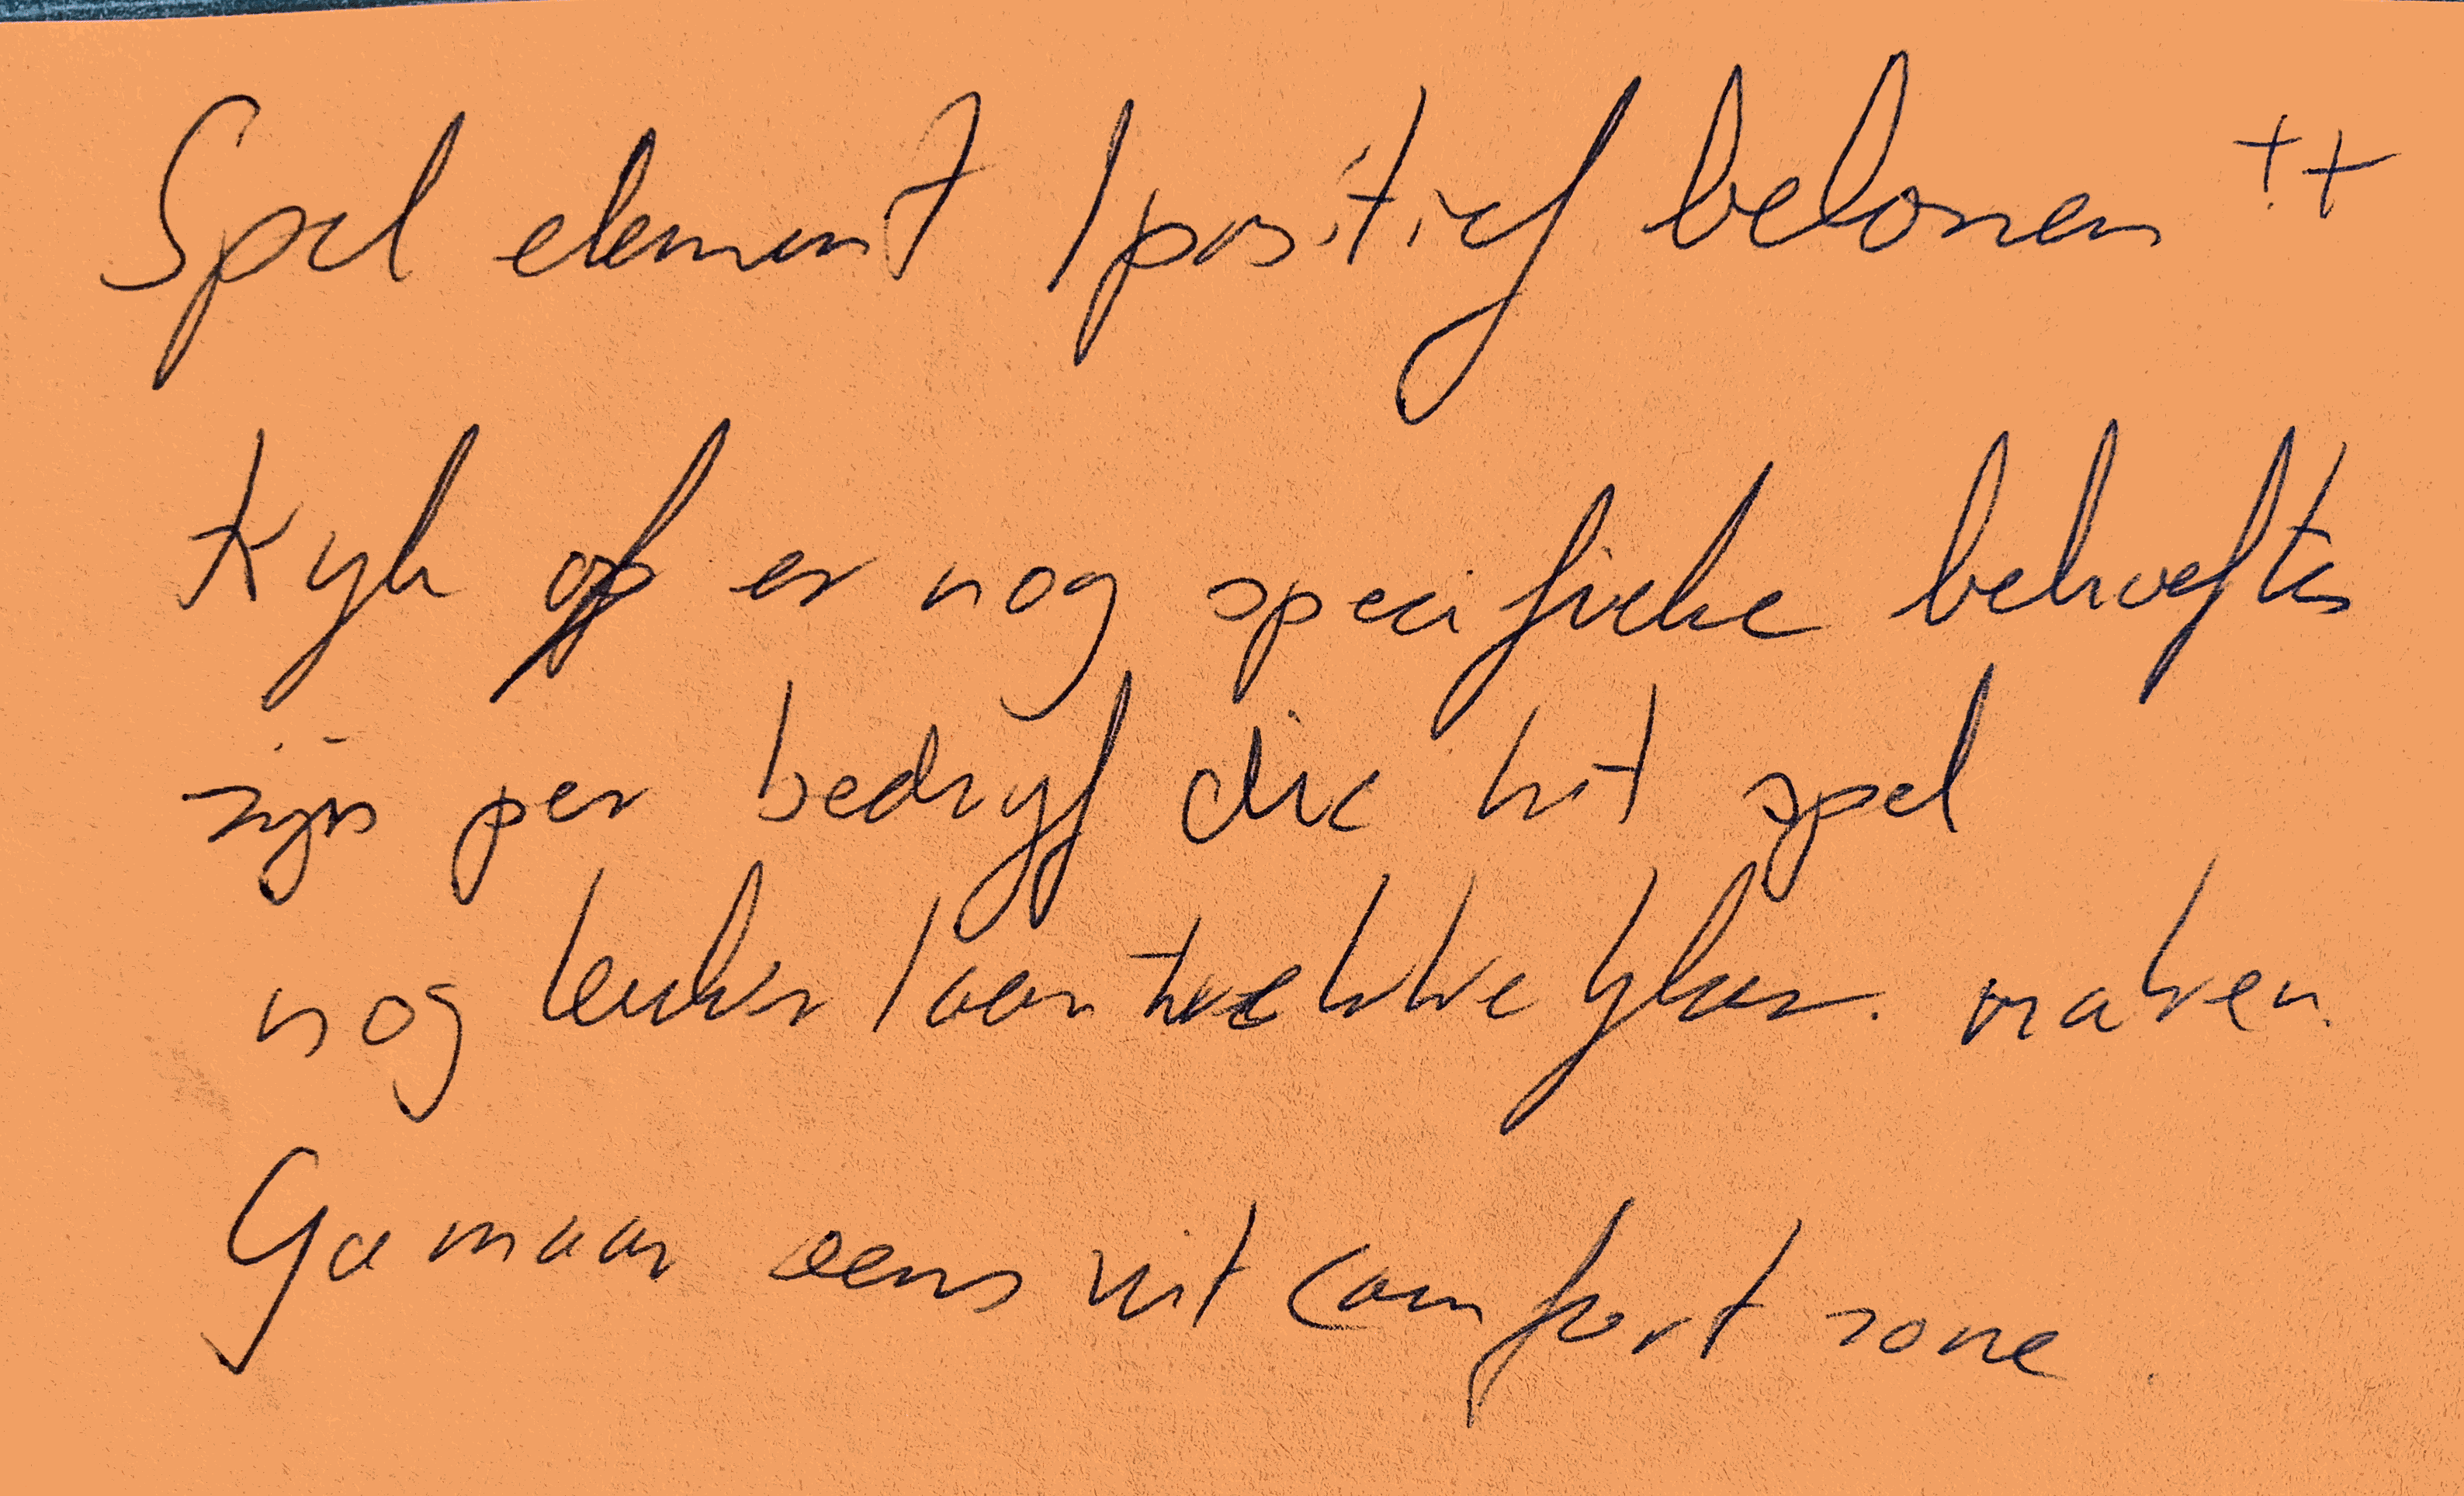 Spel element / positief belonen ++
Kijk of er nog specifieke behoeftes
zijn per bedrijf die het spel
nog leuker / aantrekkelijker. maken.
Ga maar eens uit comfort zone.